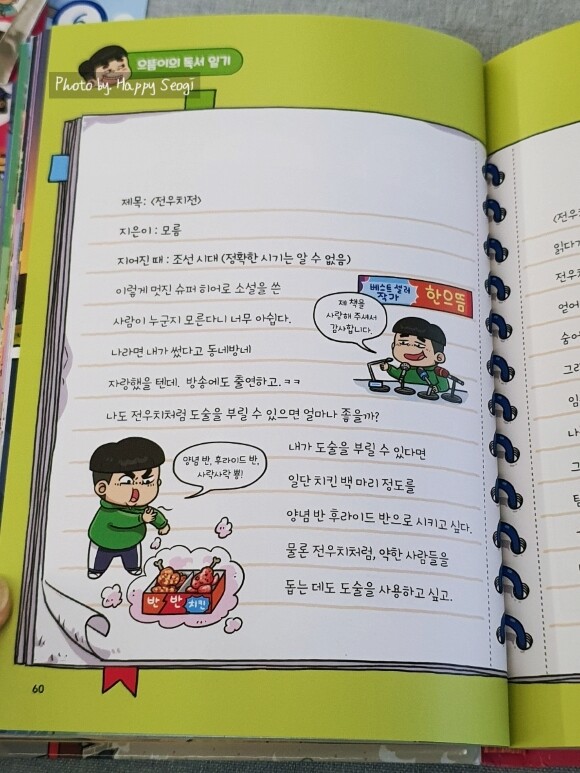 으뜸이의 독서 일기
Photo by Happy Seogi
제목: <전우치전>
지은이 : 모름
지어진 때 : 조선 시대 (정확한 시기는 알 수 없음)
이렇게 멋진 슈퍼 히어로 소설을 쓴
사람이 누군지 모른다니 너무 아쉽다.
나라면 내가 썼다고 동네방네
자랑했을 텐데. 방송에도 출연하고.ㅋㅋ
베스트 셀러
작가
한으뜸
제 책을
사랑해 주셔서
감사합니다.
나도 전우치처럼 도술을 부릴 수 있으면 얼마나 좋을까?
양념 반, 후라이드 반,
사락사락 뿅!
내가 도술을 부릴 수 있다면
일단 치킨 백 마리 정도를
양념 반 후라이드 반으로 시키고 싶다.
물론 전우치처럼, 약한 사람들을
돕는 데도 도술을 사용하고 싶고.
반 반 치킨
60
<전우
읽다가
전우
얻어
숨어
그러
임
나
그